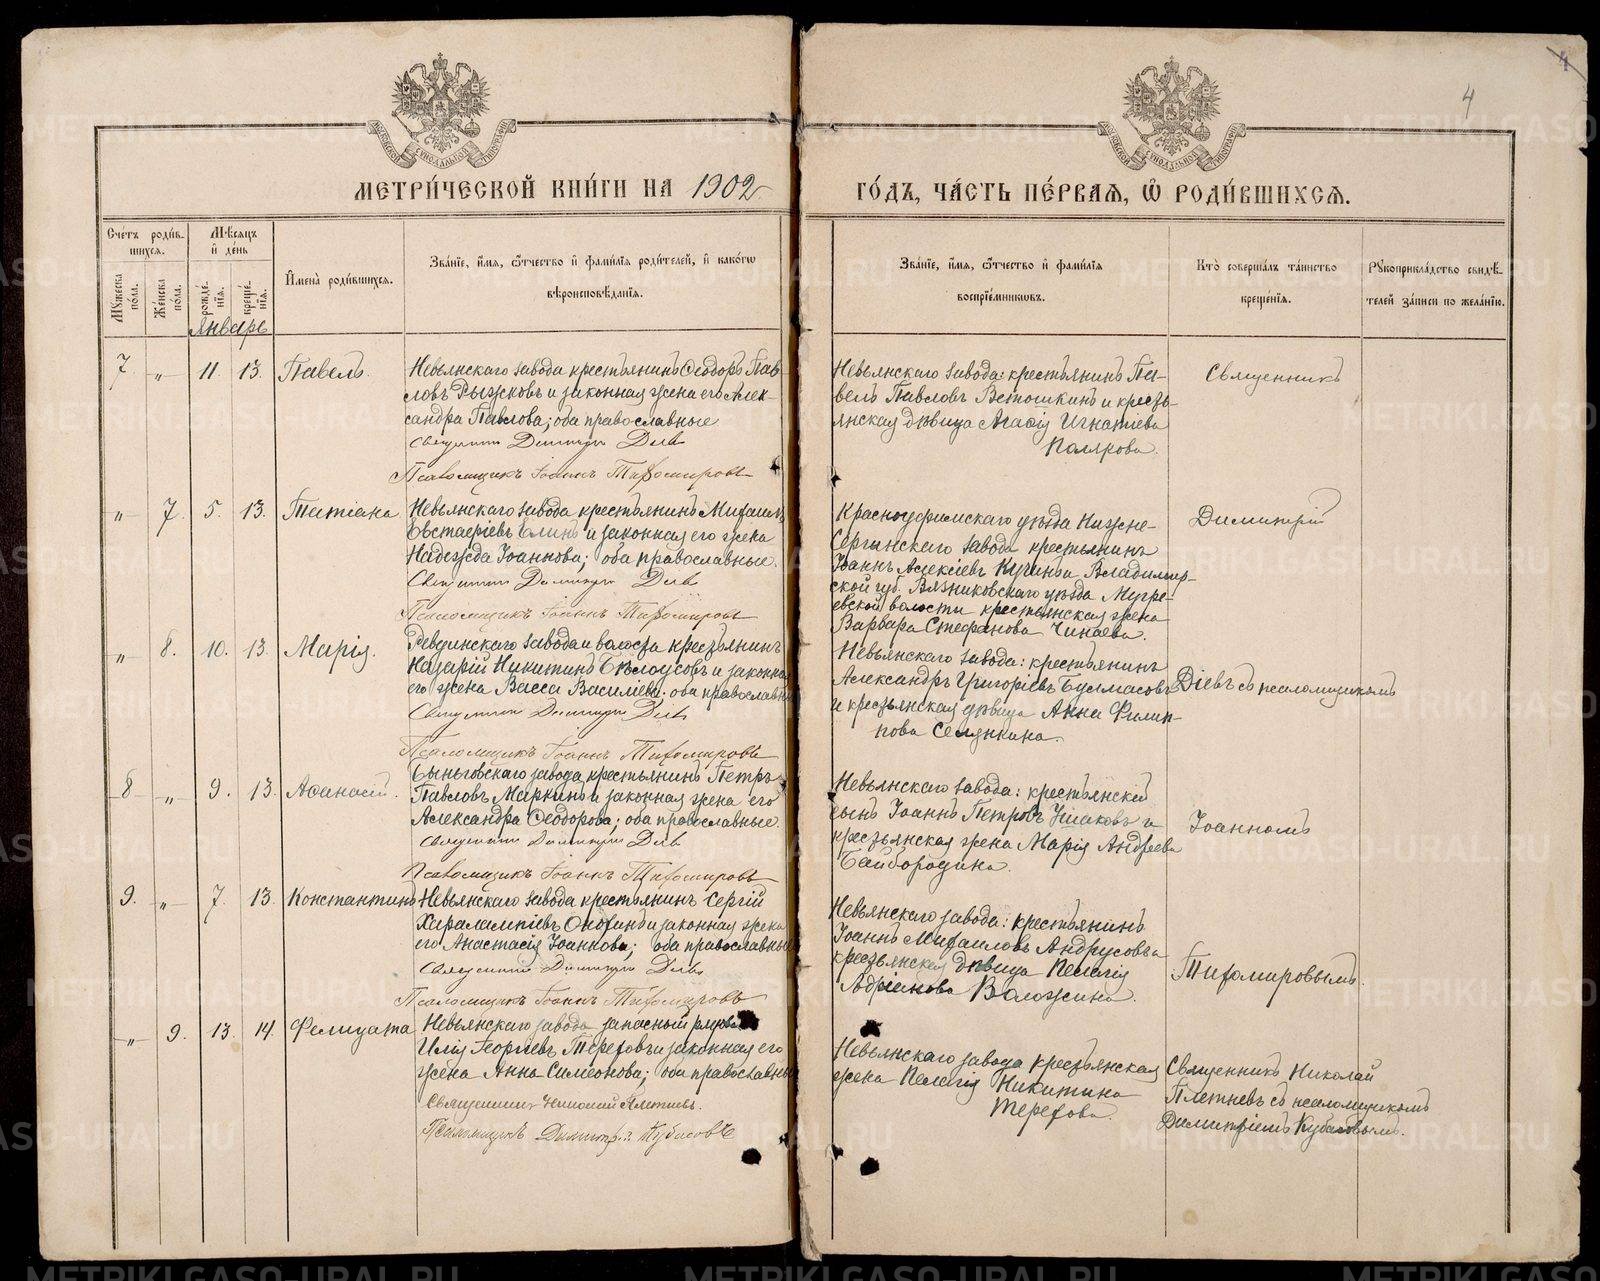 4
МЕТРИ́ЧЕСКОЙ КНИ́ГИ НА 1902
ГО́ДЪ, ЧА́СТЬ ПЕ́РВАѦ, Ѡ҆ РОДИ́ВШИХСѦ.
Счетъ роди́в-
шихсѧ.
Мѣсѧцъ
и҆ де́нь
Мꙋжеска по́ла.
Же́нска по́ла.
рожде́-
нїѧ.
креще́-
нїѧ.
И҆мена̀ роди́вшихсѧ.
Зва́нїе, и҆́мѧ, ѻ҆́тчество и҆ фами́лїѧ роди́телей, и҆ како́гѡ
вѣроисповѣ́данїѧ.
Зва́нїе, и҆́мѧ, ѻ҆́тчество и҆ фами́лїѧ
воспрїе́мникѡвъ.
Кто̀ соверша́лъ та́инство
креще́нїѧ.
Рꙋкоприкла́дство свидѣ́-
телей за́писи по жела́нїю.
Январь
7. " 11. 13. Павелъ.
Невьянскаго завода крестьянинъ Ѳеодоръ Пав-
ловъ Рыжковъ и законная жена его Алек-
сандра Павлова; оба православные
Священникъ Димитрій Діевъ
Псаломщикъ Іоаннъ Тихомировъ
Невьянскаго завода: крестьянинъ Па-
велъ Павловъ Ветошкинъ и кресть-
янская дѣвица Агаѳія Игнатіева
Полярова.
Священникъ
" 7. 5. 13. Татіана
Невьянскаго завода крестьянинъ Михаилъ
Евстафіевъ Елинъ и законная его жена
Надежда Іоаннова; оба православные.
Священникъ Димитрій Діевъ
Псаломщикъ Іоаннъ Тихомировъ
Красноуфимскаго уѣзда Нижне-
Сергинскаго завода крестьянинъ
Іоаннъ Алексіевъ Кучинъ и Владимир-
ской губ. Вязниковскаго уѣзда Мугре-
евской волости крестьянская жена
Варвара Стефанова Чинаева.
Димитрій
" 8. 10. 13. Марія.
Ревдинскаго завода и волости крестьянинъ
Назарій Никитинъ Бѣлоусовъ и законная
его жена Васса Василіева; оба православные
Священникъ Димитрій Діевъ
Псаломщикъ Іоаннъ Тихомировъ
Невьянскаго завода: крестьянинъ
Александръ Григоріевъ Бурмасовъ
и крестьянская дѣвица Анна Филип-
пова Селянкина.
Діевъ съ псаломщикомъ
8 " 9. 13. Аѳанасій.
Быньговскаго завода крестьянинъ Петръ
Павловъ Маркинъ и законная жена его
Александра Ѳеодорова; оба православные.
Священникъ Димитрій Діевъ
Псаломщикъ Іоаннъ Тихомировъ
Невьянскаго завода: крестьянскій
сынъ Іоаннъ Петровъ Ушаковъ и
крестьянская жена Марія Андреева
Байбородина.
Іоанномъ
9. " 7. 13. Константинъ
Невьянскаго завода крестьянинъ Сергій
Харалампіевъ и законная жена
его Анастасія Іоаннова; оба православные
Священникъ Димитрій Діевъ
Псаломщикъ Іоаннъ Тихомировъ
Невьянскаго завода: крестьянинъ
Іоаннъ Михаиловъ Андрусовъ и
крестьянская дѣвица Пелагія
Адріанова Воложина.
Тихомировымъ.
" 9. 13. 14. Фелицата
Невьянскаго завода запасный рядовой
Илія Георгіевъ Тереховъ и законная его
жена Анна Симеонова; оба православные
Священникъ Николай Плетневъ.
Псаломщикъ Димитрій Кубасовъ
Невьянскаго завода крестьянская
жена Пелагія Никитина
Терехова.
Священникъ Николай
Плетневъ съ псаломщикомъ
Димитріемъ Кубасовымъ.